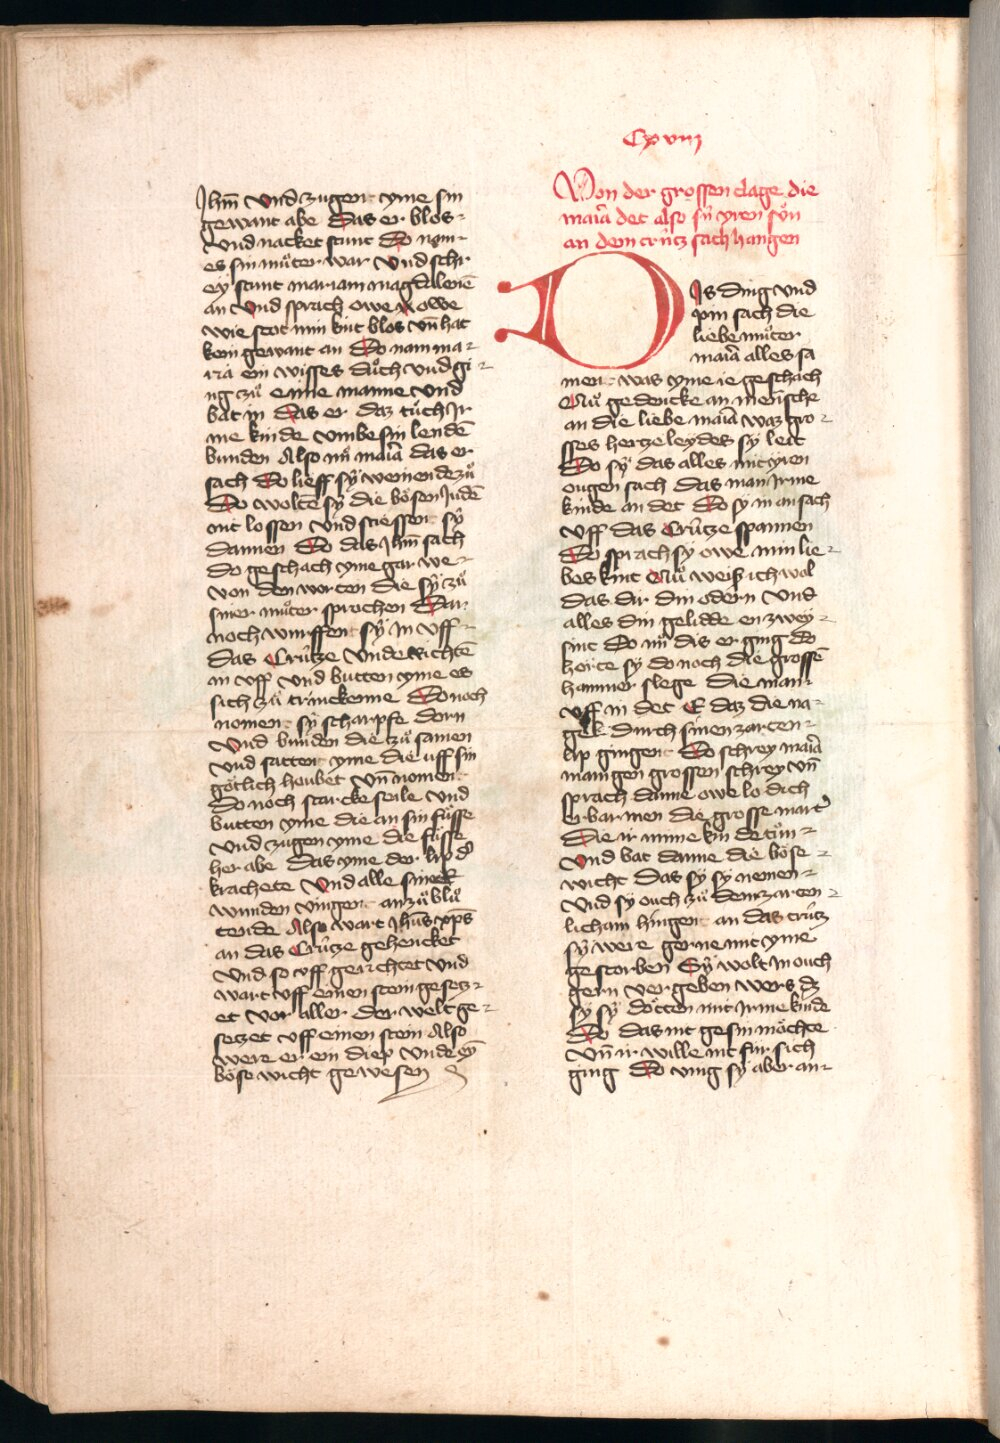 Jhm̄ vnd zugent yme sin
gewant abe Das er blos-
vnd nacket stunt Do nam-
es sin můter war Vnd schr
ey stunt mariam magdalenē
an vnd sprach owe x owe
wie stot min kint blos vn̄ hat
kein gewant an Do nam ma-
ria ein wisses důch vnd gi-
ng zů eime manne vnd
bat in Das er daz tůch Ir
me kinde vmbe sin lendē
bunden Also nū maīa das er
sach Do lieff sy weinende zů
Do woltē sy die bösen Judē
nit lossen vnd stiessent sy
dannen Do das Jhm̄ sach
do geschach yme gar we-
von den worten die sy zů
siner můter sprochen Dar-
noch wurffent sy in vff-
das Crütze vnde richtē
in vff vnd butten yme es
sich zů trinckenne Donoch
nomen- sy scharpfe dorn
vnd bunden die zů samen
vnd satten yme die uff sin
götlich houbet vn̄ nomen-
do noch starcke seile vnd
butten yme die an sin fůsse
vnd zugen yme die fůsse
her abe Das yme der lip
krachete Vnd alle sine
wunden vingen an zů blů
tende Also wart Jhūs xp̄s
an das Crütze gehencket
vnd so vff gerichtet vnd
wart vff einen stein gesetz-
et vor aller der welt ge-
setzet vff einen stein Also
were er ein diep vnde eȳ
böse wicht gewesen
Cxviij
Von der grossen clage die
maīa det also sy yren sůn
an dem crütz sach hangen
DIs ding vnd
pin sach die
liebe můter
maīa alles sa
men- was yme ie geschach
Nů gedencke an mensche
an die liebe maīa waz gro-
sses hertzeleydes sy leit
Do sy das alles mit yren
ougen sach das man irme
kinde an det Do sy in an sach
vff das Crütze spannen
Do sprach sy owe min lie-
bes kint Nů weiß ich wol
das dir din odern vnd
alles din gelidde en zwey-
sint Do nū dis er ging do
horte sy do noch die grossē
hammer slege die man-
vff in det E daz die na-
gele durch sinen zarten-
lip gingent Do schrey maīa
manigen grossen schrey vn̄
sprach danne owe lo dich
erbarmen die grosse mart̄
Die ir mime kinde tůn-
Vnd bat danne die böse-
wicht das sy sy nemen-
vnd sy ouch zů dem zarten-
licham hingent an das crütz
sy were gerne mit yme
gestorben Sy wolt in ouch
gern ver geben wers dz
sy sy dötten mit irme kinde
Do das nit gesin möchte
vn̄ ir wille nit für sich
ging Do ving sy aber an-